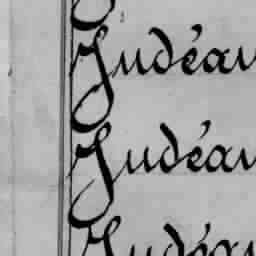 Judéan
Judéan
Judéan